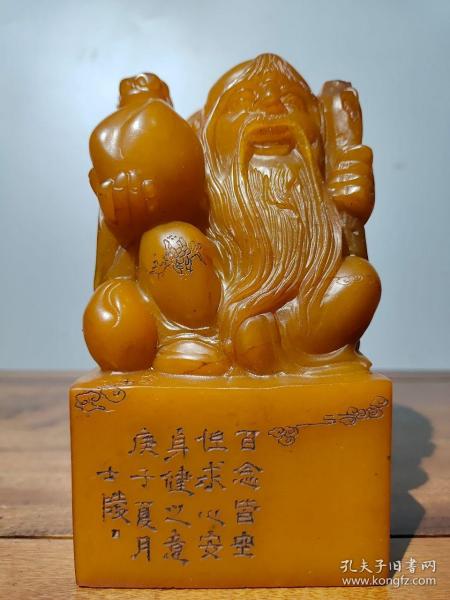 百念皆空
但求心安
身健之意
庚子夏月
士陵
孔夫子旧书网
www.kongfz.com